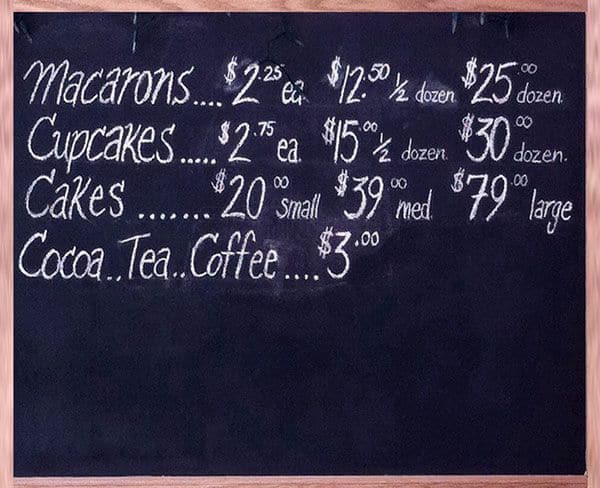 Macarons.... $2.25 ea $12.50 ½ dozen $25.00 dozen
Cupcakes..... $2.75 ea. $15.00 ½ dozen. $30.00 dozen.
Cakes ....... $20.00 small $39.00 med. $79.00 large
Cocoa..Tea..Coffee....$3.00